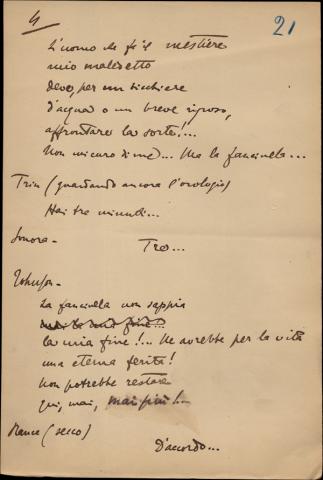 4
21
L'uomo che fa il mestiere
mio maledetto
deve, per un bicchiere
d'acqua o un breve riposo,
affrontare la sorte!...
Non mi curo di me... Ma la fanciulla...
Trin (guardando ancora l'orologio)
Hai tre minuti...
Sonora -
Tre...
Johnson -
La fanciulla non sappia
la mia fine!... Ne avrebbe per la vita
una eterna ferita!
Non potrebbe restare
qui, mai, mai più!...
Rance (secco)
D'accordo...